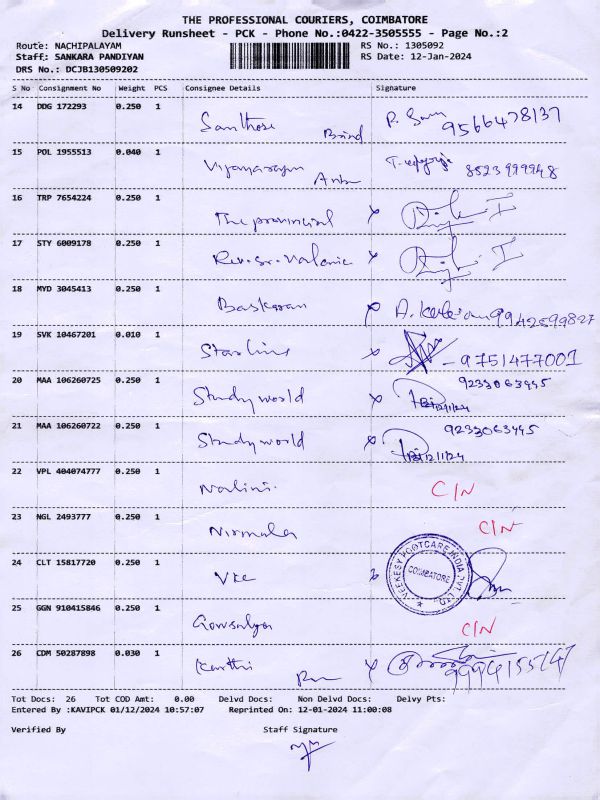 THE PROFESSIONAL COURIERS, COIMBATORE
Delivery Runsheet - PCK - Phone No.:0422-3505555 - Page No.:2
Route: NACHIPALAYAM RS No.: 1305092
Staff: SANKARA PANDIYAN RS Date: 12-Jan-2024
DRS No.: DCJB130509202
S No Consignment No Weight PCS Consignee Details Signature
14 DDG 172293 0.250 1 Santhose 9566478137
15 POL 1955513 0.040 1 8523999948
16 TRP 7654224 0.250 1 The provincial
17 STY 6009178 0.250 1 Rev.Sr.
18 MYD 3045413 0.250 1 Baskaran 9942599827
19 SVK 10467201 0.010 1 Starline 9751477001
20 MAA 106260725 0.250 1 Study world 9233063445 12/1/24
21 MAA 106260722 0.250 1 Study world 9233063445 12/1/24
22 VPL 404074777 0.250 1 Nalini C/N
23 NGL 2493777 0.250 1 Nirmala C/N
24 CLT 15817720 0.250 1 VKC VEEKESY FOOTCARE INDIA PVT. LTD. COIMBATORE
25 GGN 910415846 0.250 1 Gowsalya C/N
26 CDM 50287898 0.030 1 Karthi
Tot Docs: 26 Tot COD Amt: 0.00 Delvd Docs: Non Delvd Docs: Delvy Pts:
Entered By :KAVIPCK 01/12/2024 10:57:07 Reprinted On: 12-01-2024 11:00:08
Verified By Staff Signature